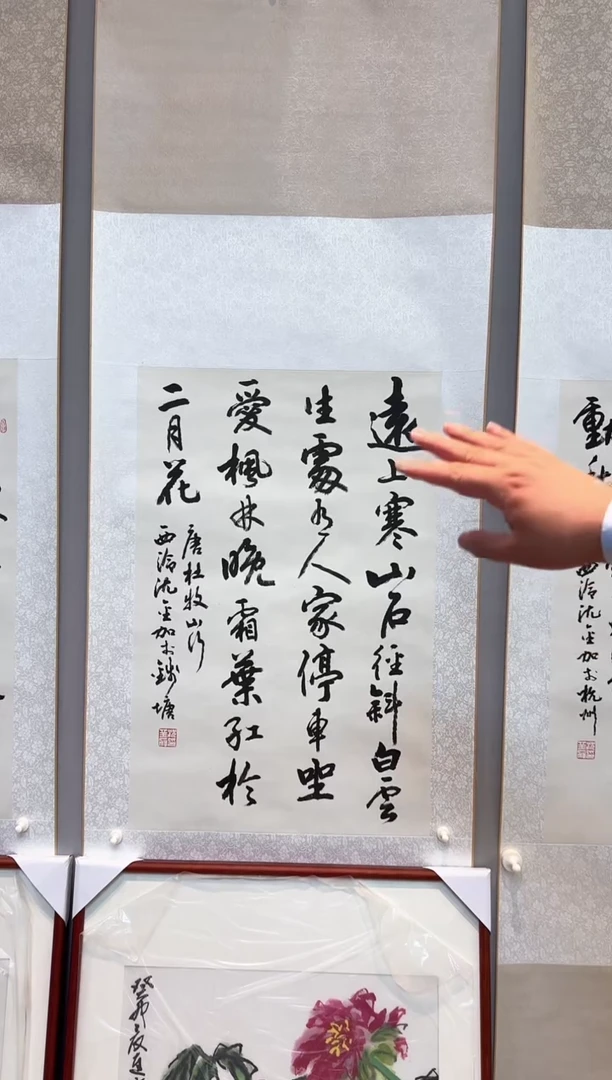 遠上寒山石徑斜白雲
生處有人家停車坐
愛楓林晚霜葉紅於
二月花
唐杜牧山行
西泠沈金加於錢塘
重
西泠沈金加於杭州
癸卯